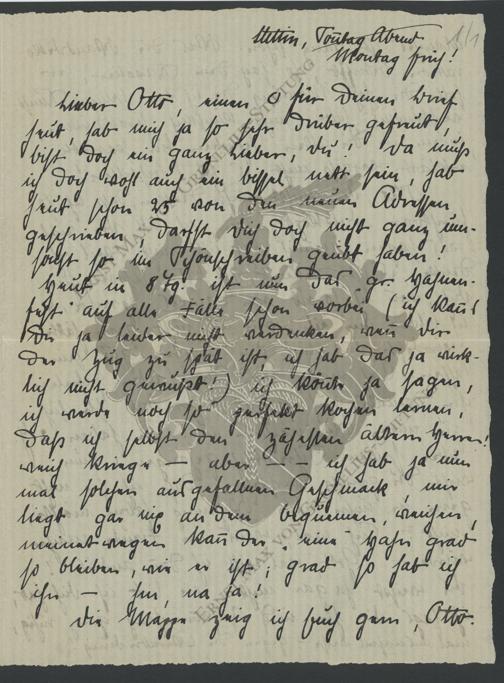 Stettin, Sonntag Abend
Montag früh!
1/1
Lieber Otto, einen O für Deinen Brief
heut, hab mich ja so sehr drüber gefreut,
bist doch ein ganz Lieber, du! Da muß
ich doch wohl auch ein bissel nett sein, hab
heut schon 25 von den neuen Adressen
geschrieben, darfst Dich doch nicht ganz um-
sonst so im Schönschreiben geübt haben!
Heut in 8 Tg. ist nun das gr. Hahnen-
fest auf alle Fälle schon vorbei (ich kann's
Dir ja leider nicht verdenken, wenn Dir
der Zug zu spät ist, ich hab das ja wirk-
lich nicht gewußt!) ich könnte ja sagen,
ich werde noch so perfekt kochen lernen,
daß ich selbst den zähesten ältern Herrn!
weich kriege — aber — — ich hab ja nun
mal solchen ausgefallnen Geschmack, mir
liegt gar nix an dem bequemen, weichen,
meinetwegen kann der "eine" Hahn grad
so bleiben, wie er ist; grad so hab ich
ihn — hm, na ja!
Die Mappe zeig ich Euch gern, Otto.